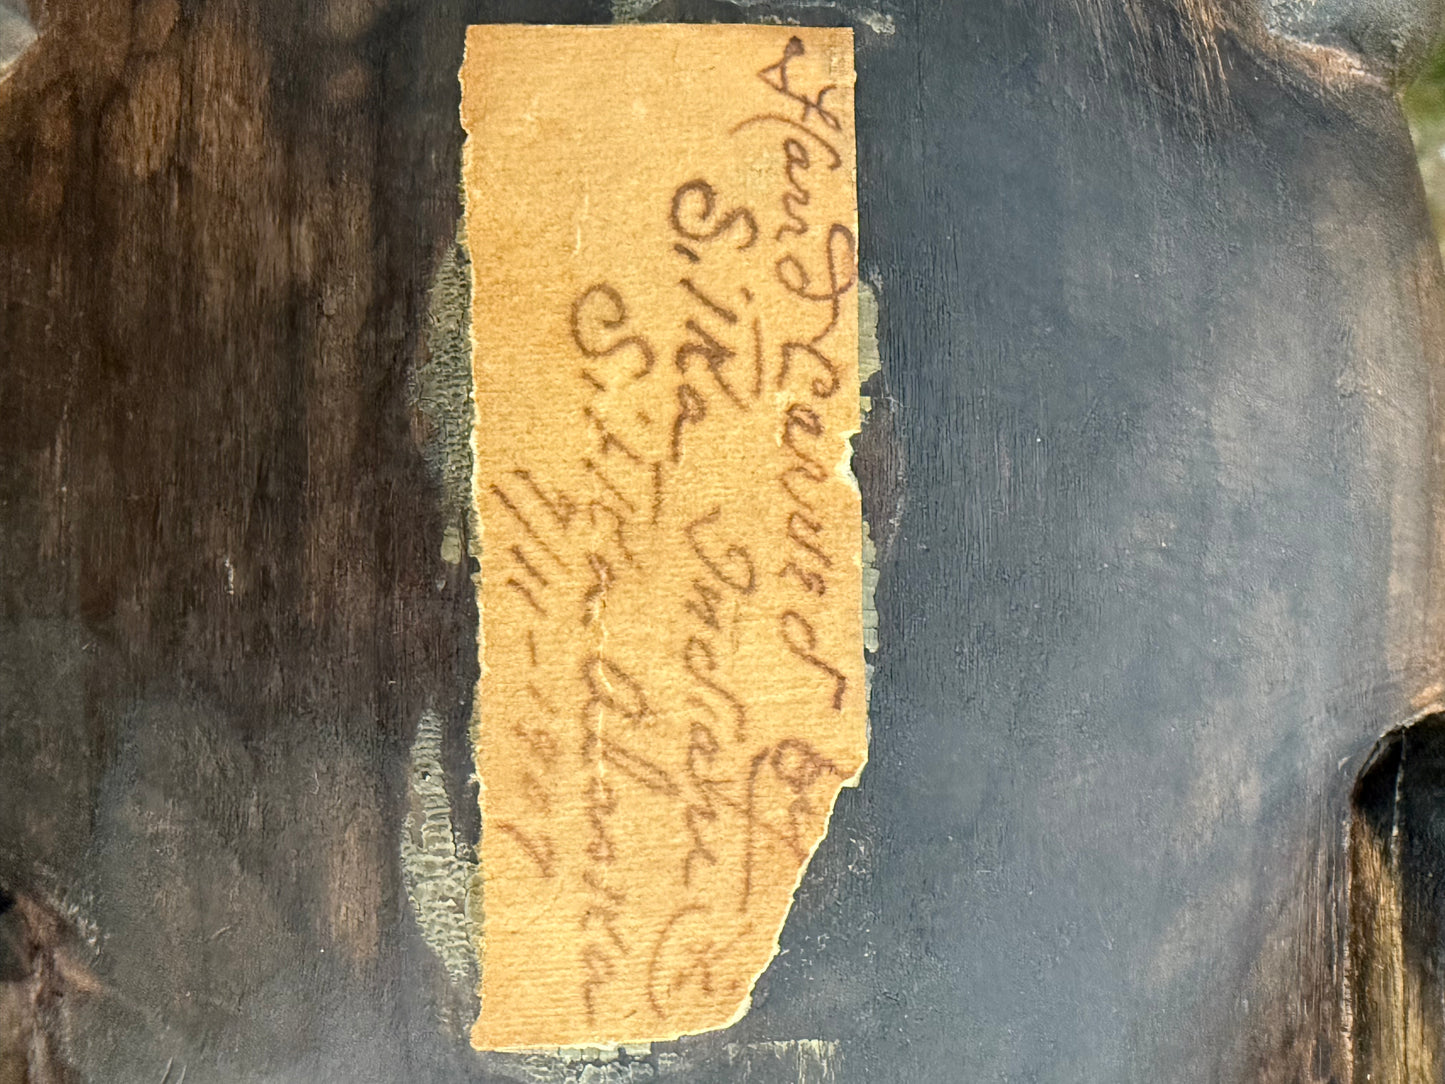 Hand Carved by
Sitka Indian
Sitka Alaska
9/11-1907